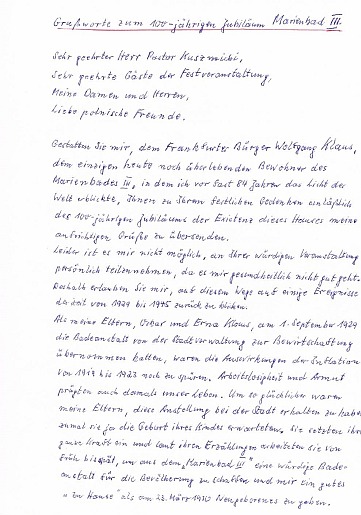 Grußworte zum 100-jährigen Jubiläum Marienbad III.
Sehr geehrter Herr Pastor Kuszmicki,
Sehr geehrte Gäste der Festveranstaltung,
Meine Damen und Herren,
Liebe polnische Freunde.
Gestatten Sie mir, dem Frankfurter Bürger Wolfgang Klaus,
dem einzigen heute noch überlebenden Bewohner des
Marienbades III, in dem ich vor fast 84 Jahren das Licht der
Welt erblickte, Ihnen zu Ihrem festlichen Gedenken anläßlich
des 100-jährigen Jubiläums der Existenz dieses Hauses meine
aufrichtigen Grüße zu übersenden.
Leider ist es mir nicht möglich, an Ihrer würdigen Veranstaltung
persönlich teilzunehmen, da es mir gesundheitlich nicht gut geht.
Deshalb erlauben Sie mir, auf diesem Wege auf einige Ereignisse
der Zeit von 1929 bis 1945 zurück zu blicken.
Als meine Eltern, Oskar und Erna Klaus, am 1. September 1929
die Badeanstalt von der Stadtverwaltung zur Bewirtschaftung
übernommen hatten, waren die Auswirkungen der Inflation
von bis 1923 noch zu spüren. Arbeitslosigkeit und Armut
prägten auch damals unser Leben. Um so glücklicher waren
meine Eltern, diese Anstellung bei der Stadt erhalten zu haben,
zumal sie ja die Geburt ihres Kindes erwarteten. Sie setzten ihre
ganze Kraft ein und laut ihren Erzählungen arbeiteten sie von
früh bis spät, um aus dem "Marienbad III" eine würdige Bade-
anstalt für die Bevölkerung zu schaffen und mir ein gutes
"zu Hause" als am 23. März 1930 Neugeborenes zu geben.